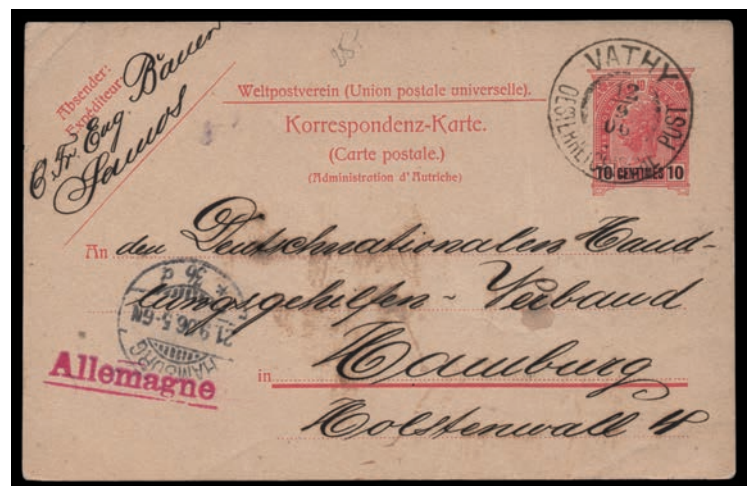 Absender:
Expéditeur:
C. Fr. Eug. Bauer
Samos
Weltpostverein (Union postale universelle).
Korrespondenz-Karte.
(Carte postale.)
(Administration d'Autriche)
VATHY
12
9
06
OESTERREICHISCHE POST
10 CENTIMES 10
An den Deutschnationalen Hand-
lungsgehilfen-Verband
in Hamburg
Holstenwall 4
HAMBURG
21.9.06.5-6N
* 36 a
Allemagne